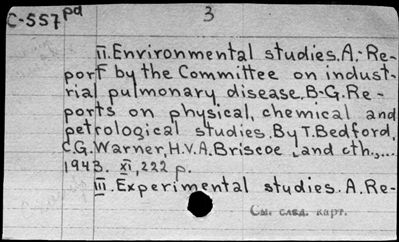 C-557 pd
3
II. Environmental studies. A.- Re-
port by the Committee on indust-
rial pulmonary disease. B-G. Re-
ports on physical, chemical and
petrological studies. By T. Bedford,
C.G. Warner, H.V.A. Briscoe and oth.,...
1943. XI, 222 p.
III. Experimental studies. A. Re-
См. след. карт.